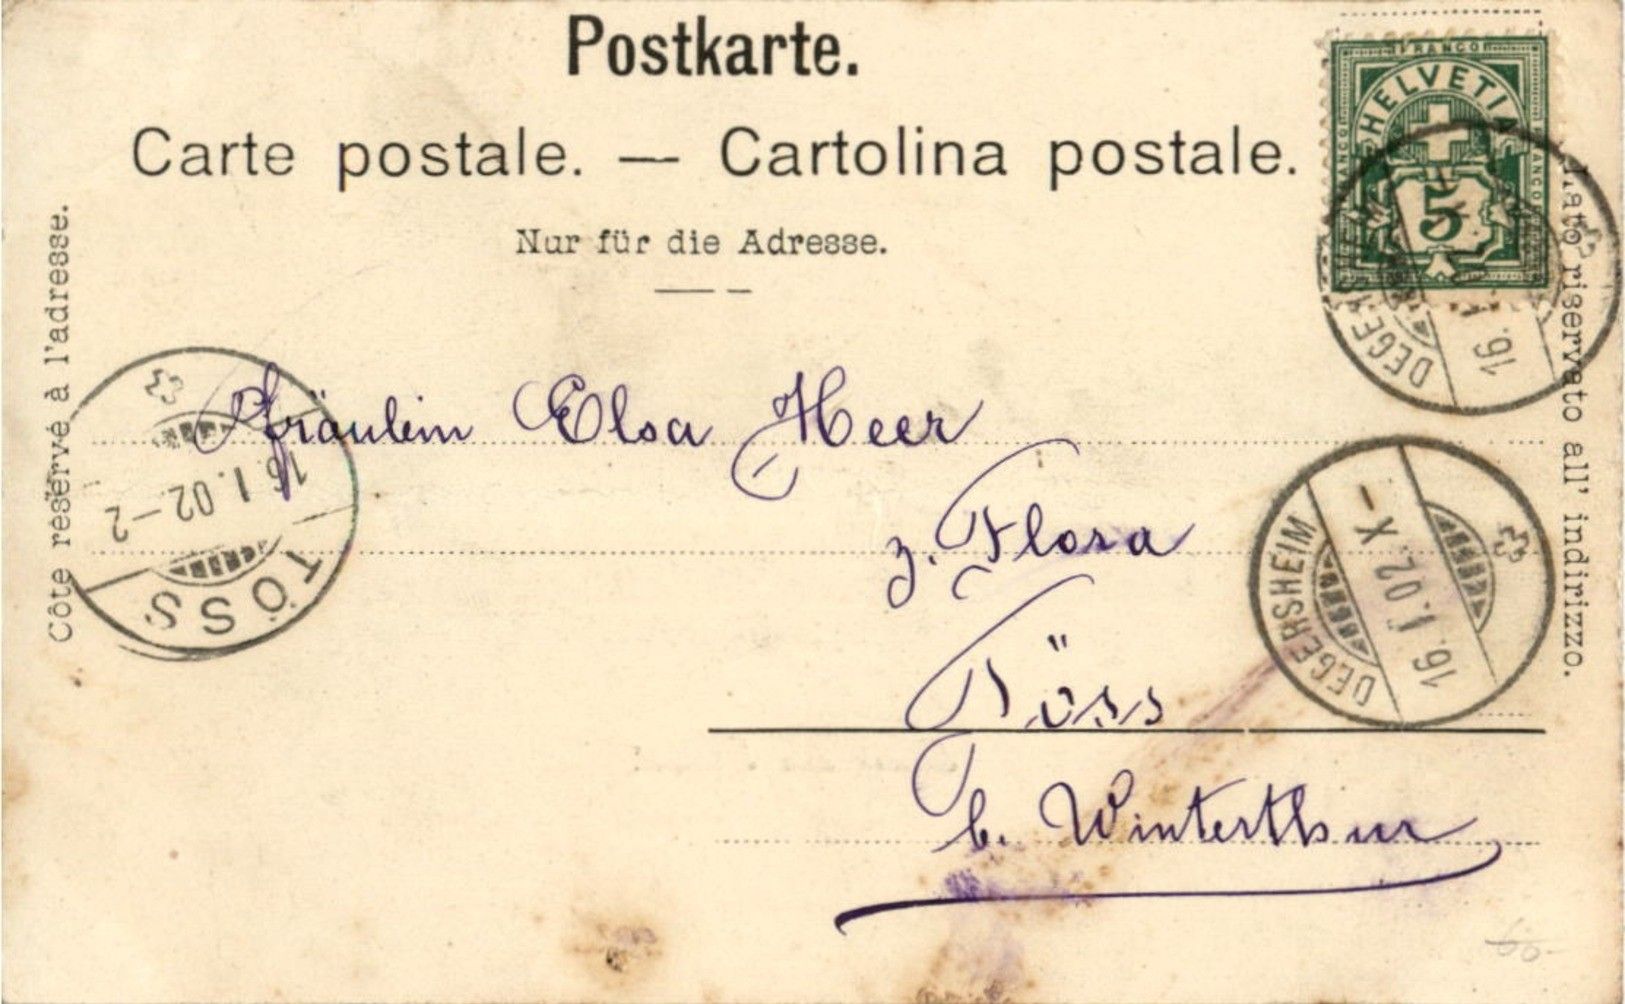 Postkarte.
Carte postale. — Cartolina postale.
Nur für die Adresse.
Côté réservé à l'adresse.
lato riservato all' indirizzo.
FRANCO
HELVETIA
FRANCO
FRANCO
5
DEGERSHEIM
16. I.
Fräulein Elsa Heer
z. Flora
Töss
b. Winterthur
TÖSS
16. I. 02-2
DEGERSHEIM
16. I. 02. X-
60-